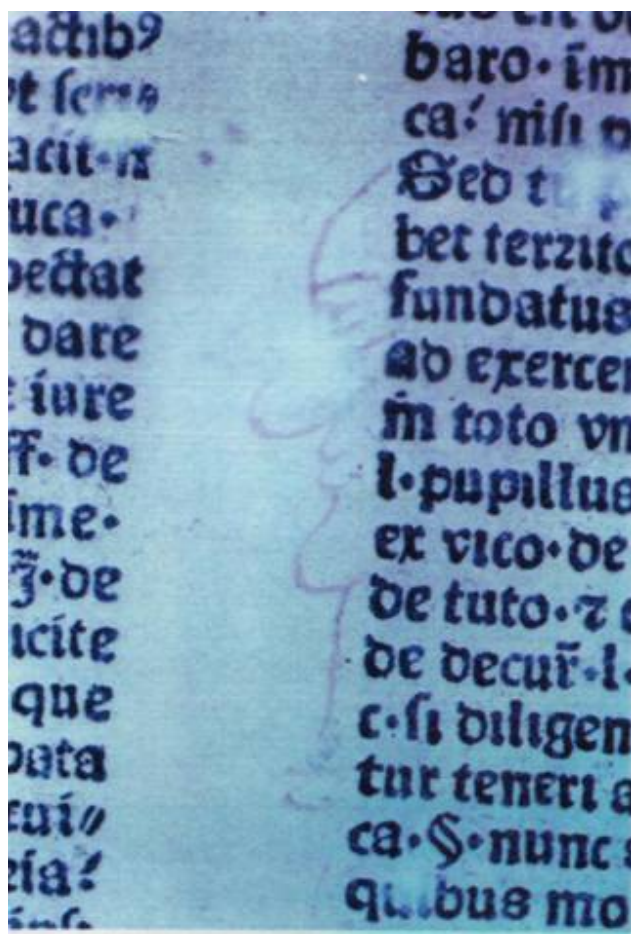 actib9
vt
acit·
uca·
pectat
dare
iure
ff· de
ime·
ʒ̃·de
icite
que
pata
cui〃
eia:
baro· im
ca: nisi
Sed
bet territo
fundatus
ad exercen
in toto vn
l·pupillus
ex vico·de
de tuto·⁊
de decur̃·l·
c·si diligen
tur teneri a
ca·§·nunc
mo